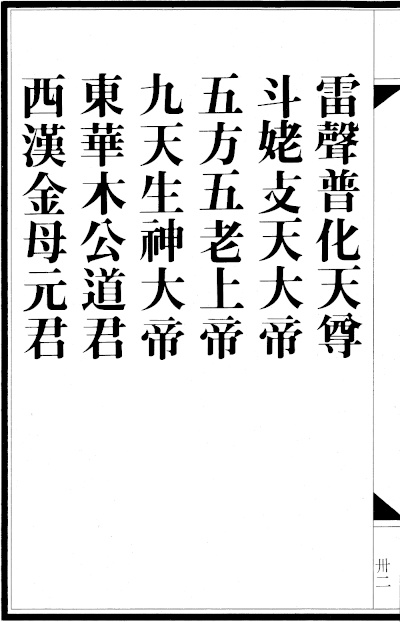 雷聲普化天尊
斗姥攴天大帝
五方五老上帝
九天生神大帝
東華木公道君
西漢金母元君
卅二